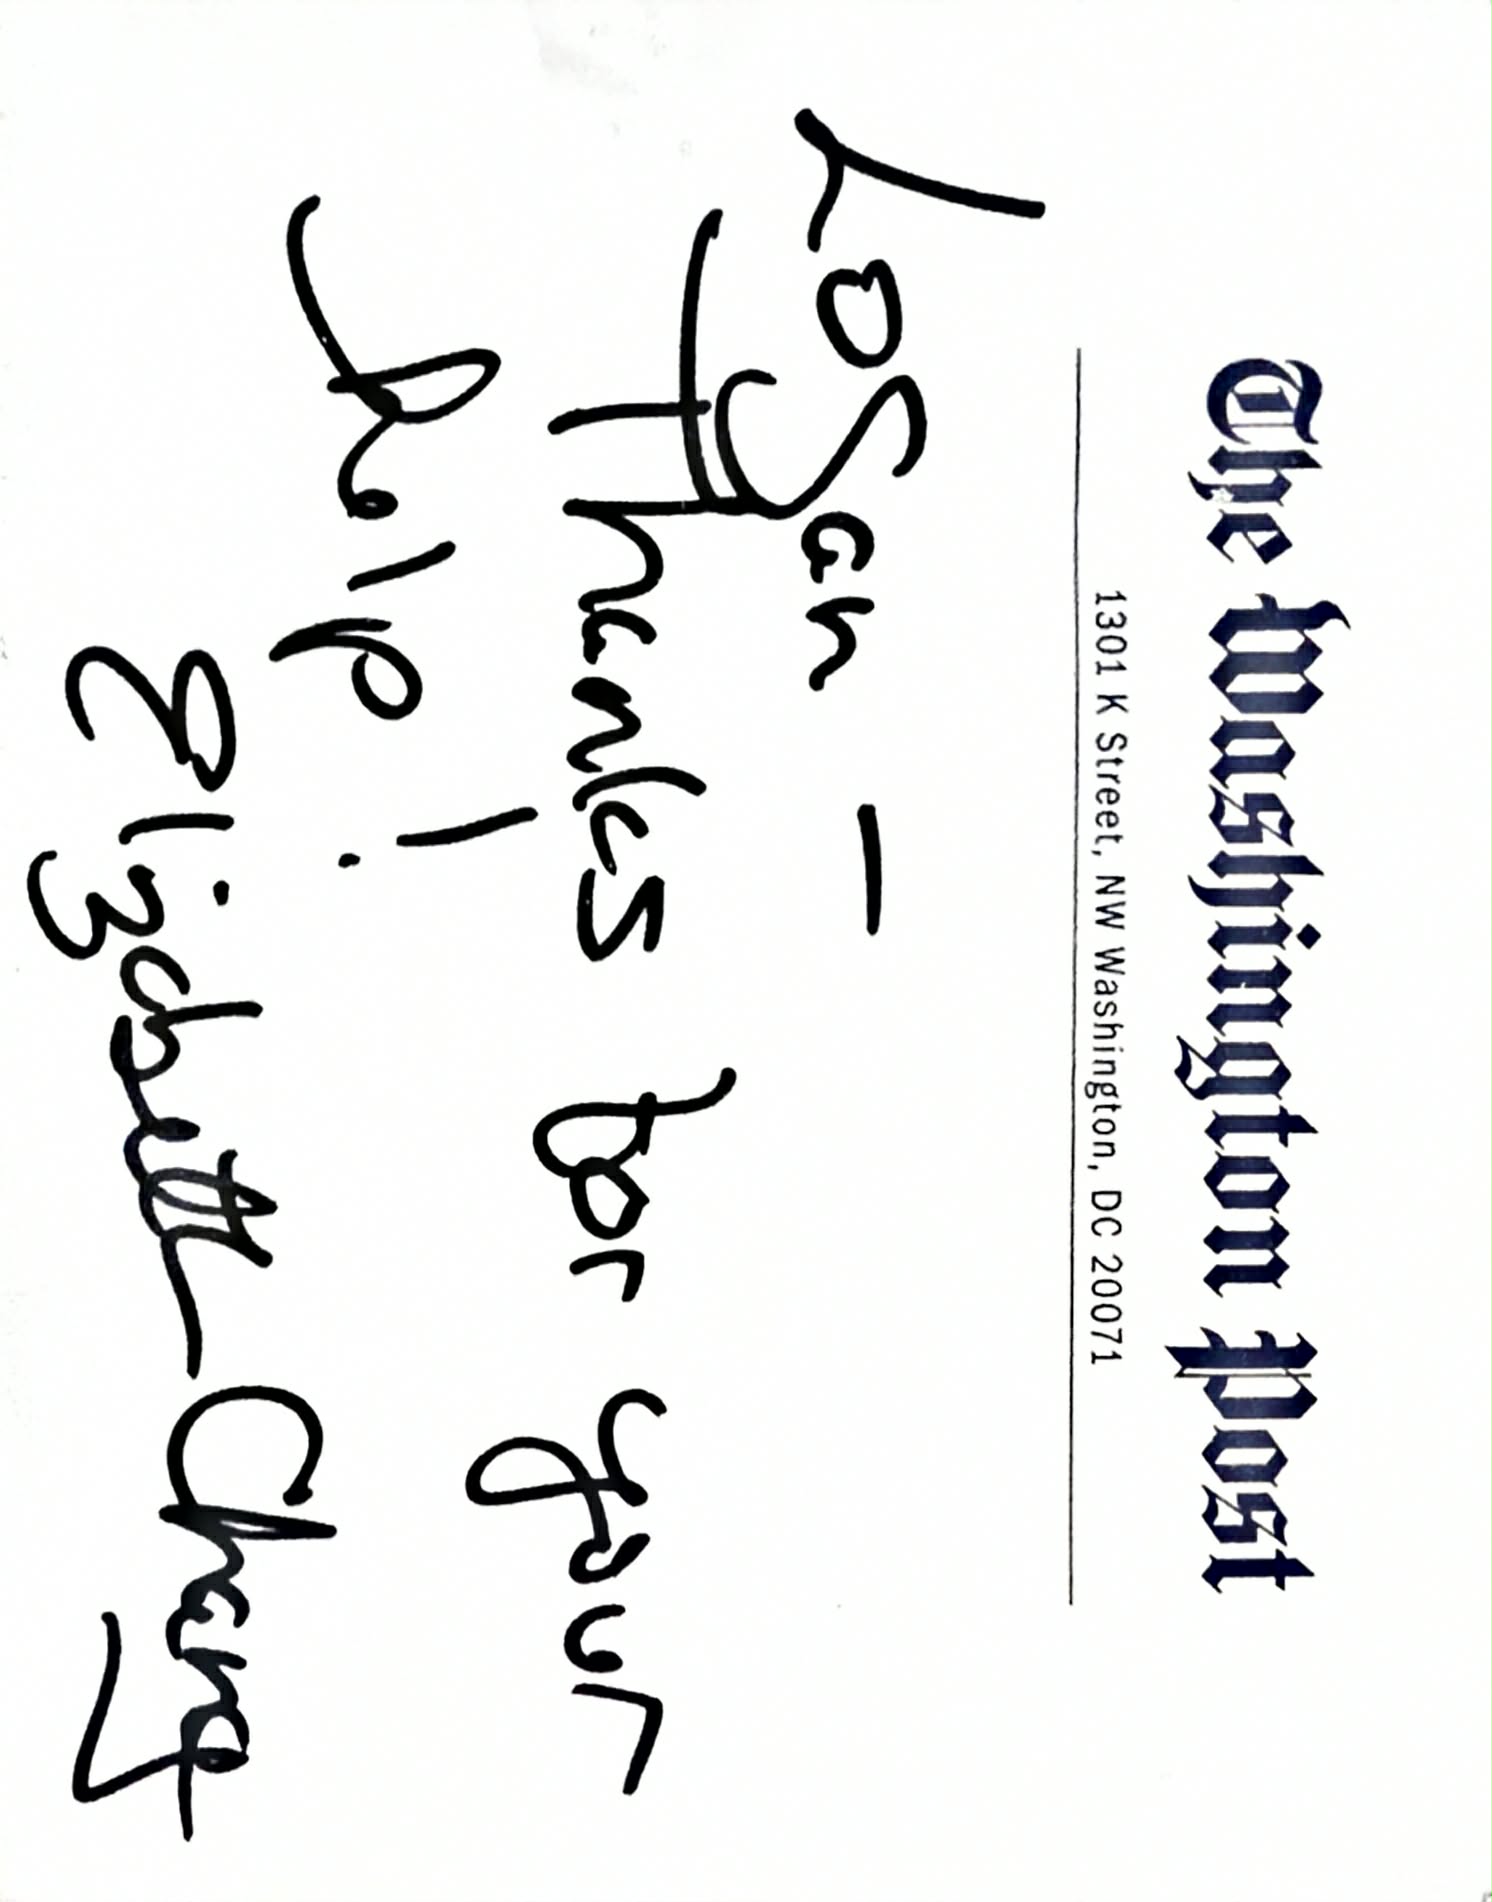 The Washington Post
1301 K Street, NW Washington, DC 20071
Logan —
Thanks for your
help!
Elizabeth Chang